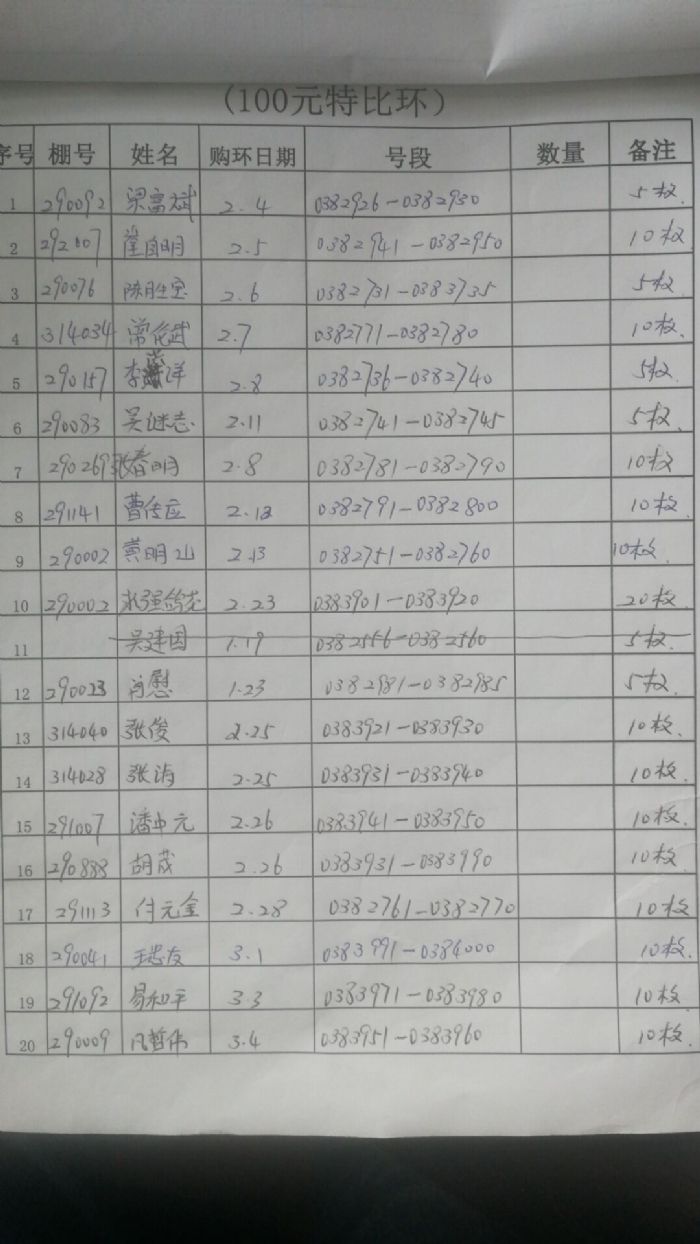 (100元特比环)
序号 棚号 姓名 购环日期 号段 数量 备注
1 290092 梁富斌 2.4 0382926-0382930 5枚.
2 292007 崔自明 2.5 0382941-0382950 10枚
3 290076 陈胜宝 2.6 0382731-0383735 5枚.
4 314034 常伦武 2.7 0382771-0382780 10枚.
5 290157 李 洋 2.8 0382736-0382740 5枚.
6 290083 吴继志 2.11 0382741-0382745 5枚.
7 290269 张春明 2.8 0382781-0382790 10枚
8 291141 曹传应 2.12 0382791-0382800 10枚.
9 290002 黄明山 2.13 0382751-0382760 10枚.
10 290002 2.23 0383901-0383920 20枚.
11 吴建国 1.19 0382556-0382560 5枚.
12 290023 肖慰 1.23 0382981-0382985 5枚.
13 314040 张俊 2.25 0383921-0383930 10枚.
14 314028 张涛 2.25 0383931-0383940 10枚.
15 291007 潘中元 2.26 0383941-0383950 10枚.
16 290888 胡茂 2.26 0383931-0383990 10枚.
17 291113 付元金 2.28 0382761-0382770 10枚
18 290041 王忠友 3.1 0383991-0384000 10枚.
19 291092 易和平 3.3 0383971-0383980 10枚.
20 290009 凡哲伟 3.4 0383951-0383960 10枚.